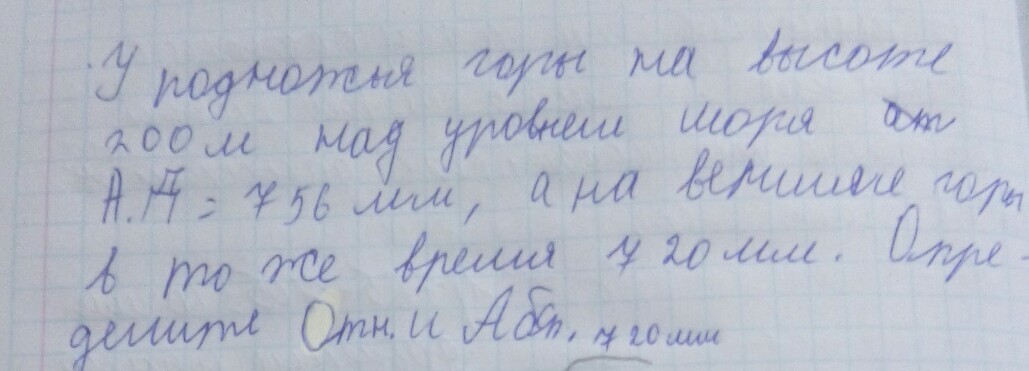 У подножья горы на высоте
200 м над уровнем моря ат
А.Д = 756 мм, а на вершине горы
в то же время 720 мм. Опре-
делите Отн. и Абсп. 720мм